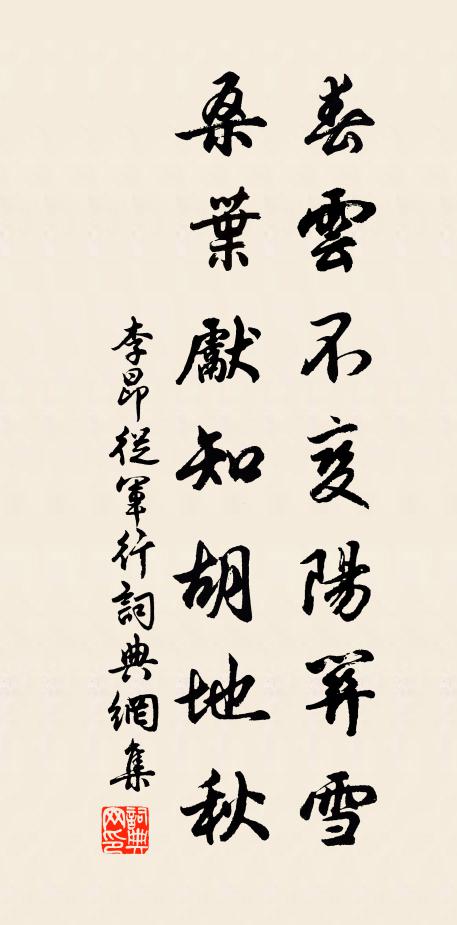 春雲不變陽笄雪
桑葉獻知胡地秋
李昂從軍行詞典網集
詞典网印